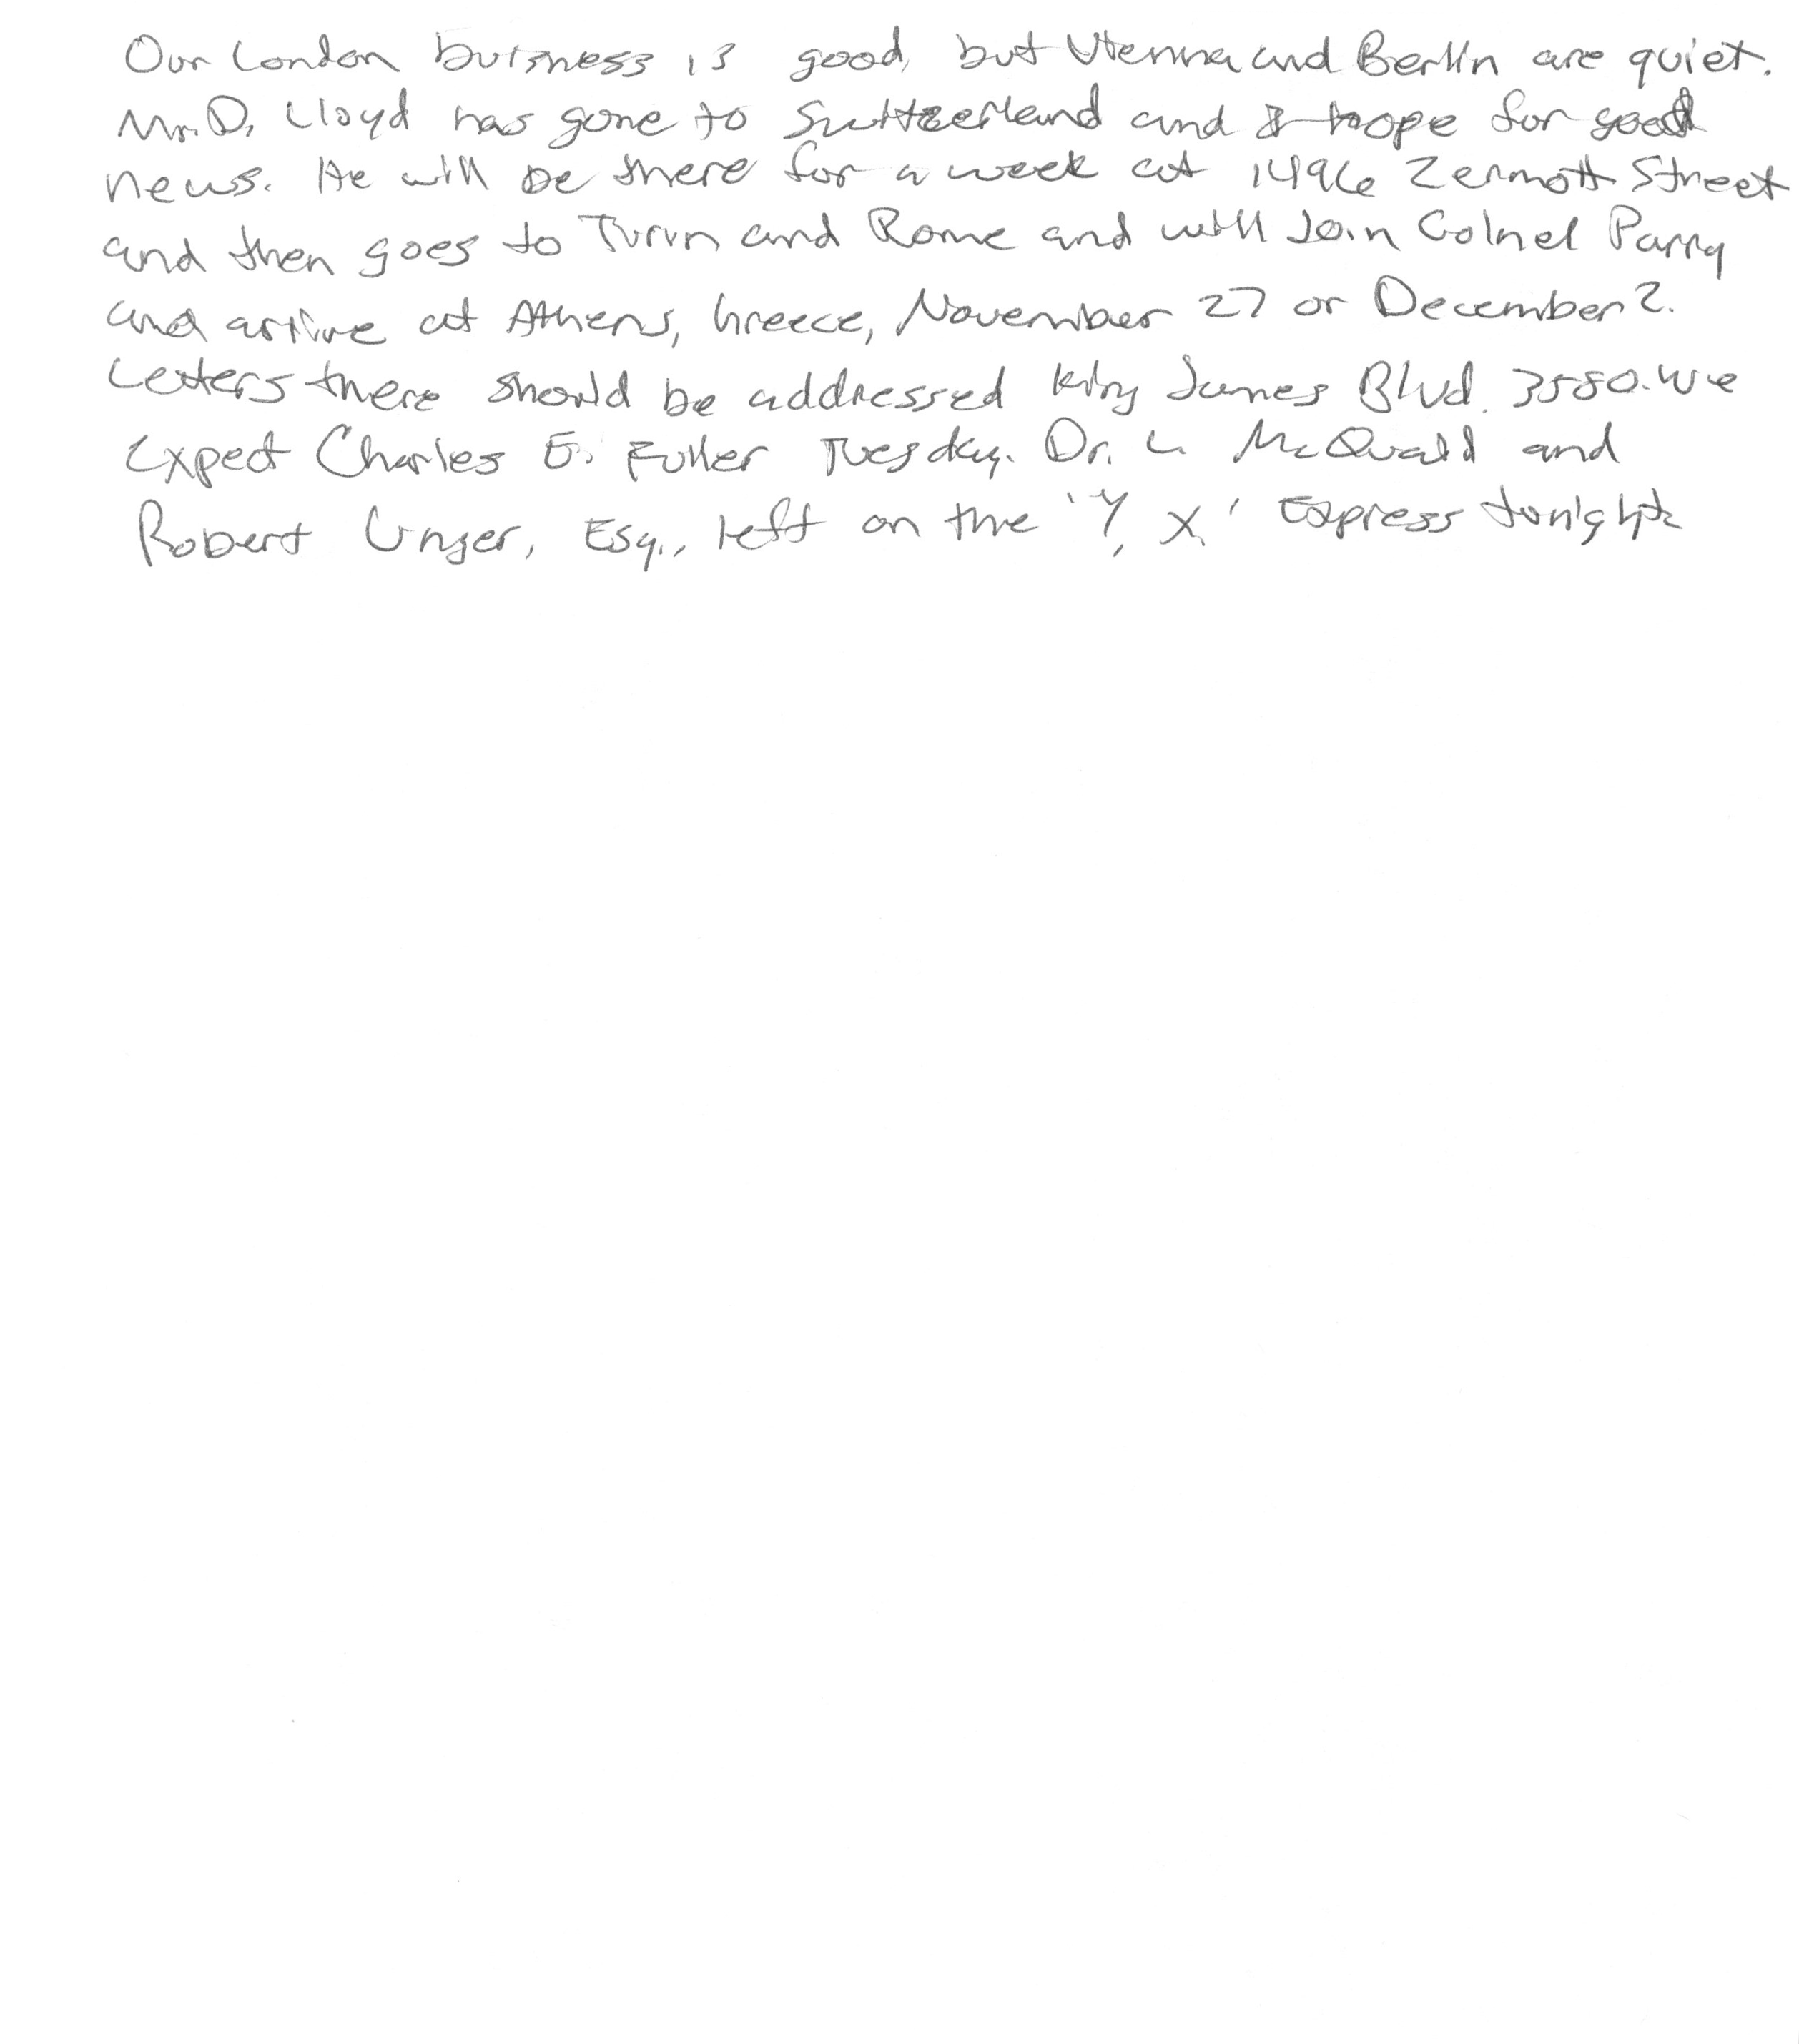 Our London buisness is good, but Vienna and Berlin are quiet.
Mr. D. Lloyd has gone to Switzerland and I hope for good
news. He will be there for a week at 1496 Zermott Street
and then goes to Turin and Rome and will Join Colnel Parry
and arrive at Athens, Greece, November 27 or December 2.
Letters there should be addressed King James Blvd. 3580. We
Expect Charles E. Fuller Tuesday. Dr. L. McQuaid and
Robert Unger, Esq., left on the 'Y, X.' Express tonight